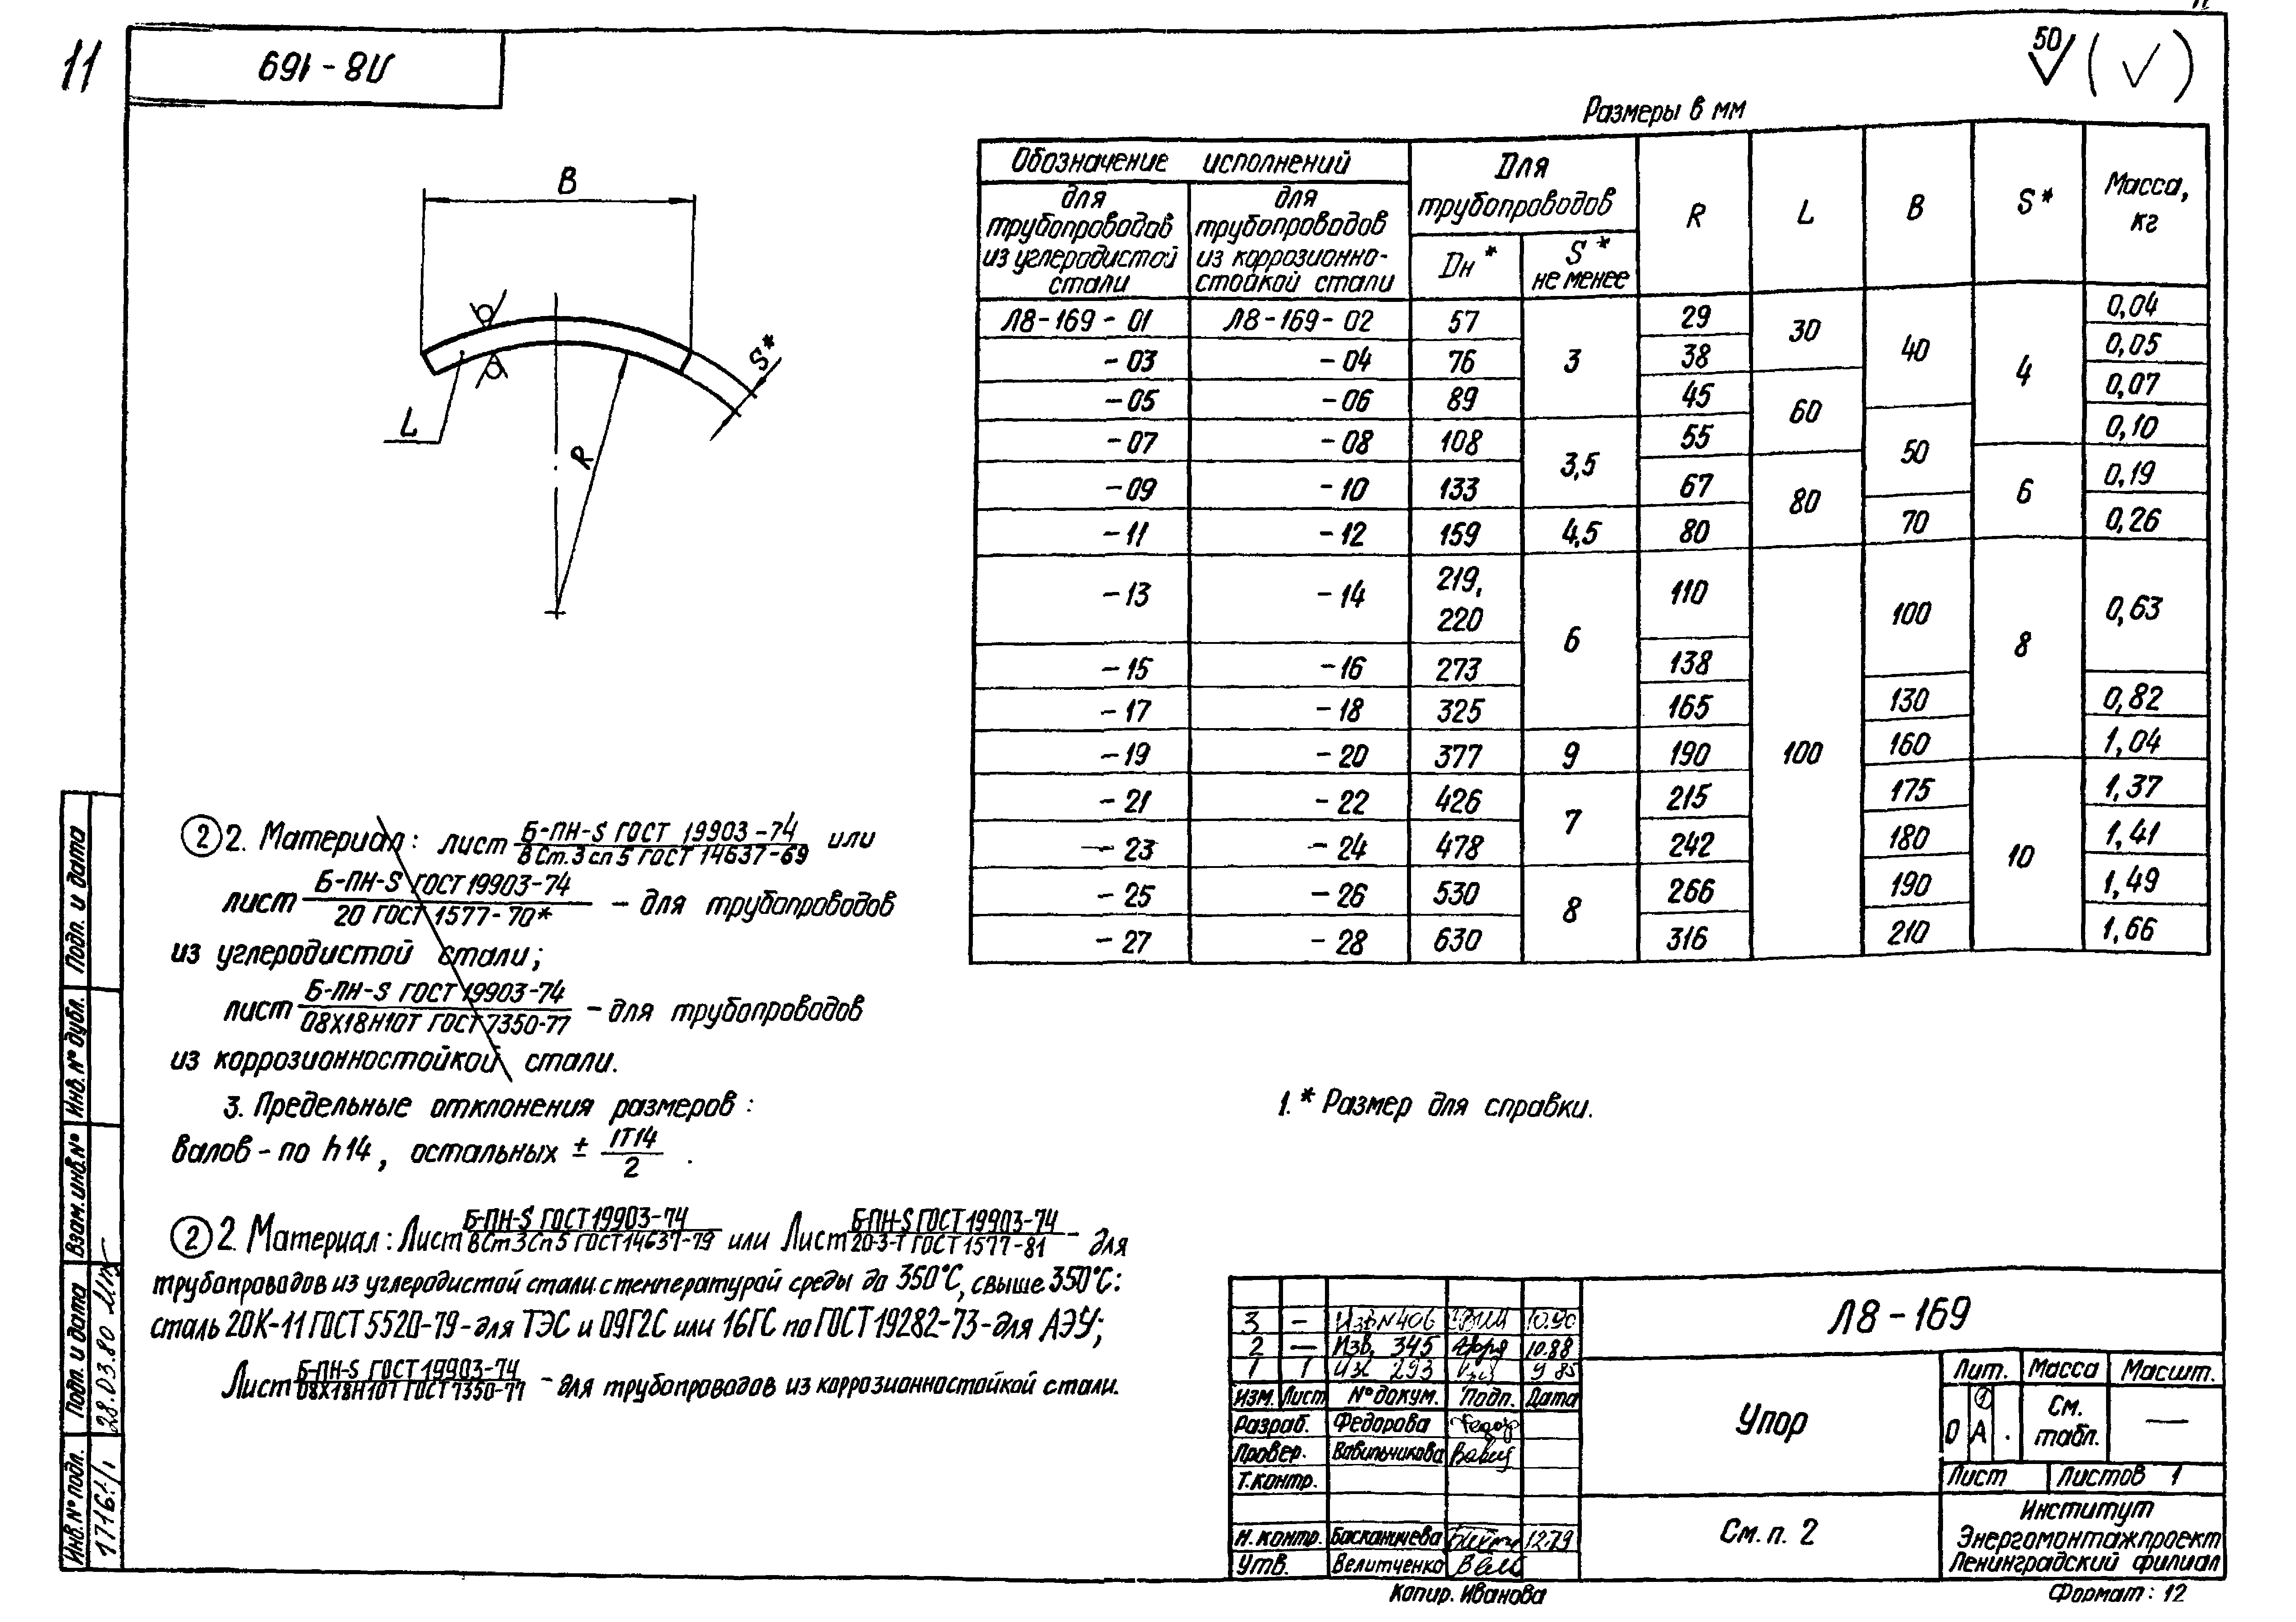 11
Л8-169
50 (√)
Размеры в мм
Обозначение исполнений
для трубопроводов из углеродистой стали
для трубопроводов из коррозионно-стойкой стали
Для трубопроводов
Dн*
S* не менее
R
L
B
S*
Масса, кг
Л8-169-01 Л8-169-02 57 3 29 30 40 4 0,04
-03 -04 76 38 0,05
-05 -06 89 45 60 0,07
-07 -08 108 3,5 55 50 0,10
-09 -10 133 67 80 6 0,19
-11 -12 159 4,5 80 70 0,26
-13 -14 219, 220 6 110 100 100 8 0,63
-15 -16 273 138
-17 -18 325 165 130 0,82
-19 -20 377 9 190 160 1,04
-21 -22 426 7 215 175 10 1,37
-23 -24 478 242 180 1,41
-25 -26 530 8 266 190 1,49
-27 -28 630 316 210 1,66
B
S*
L
R
② 2. Материал: лист Б-ПН-S ГОСТ 19903-74 / ВСт.3сп5 ГОСТ 14637-69 или
лист Б-ПН-S ГОСТ 19903-74 / 20 ГОСТ 1577-70* - для трубопроводов
из углеродистой стали;
лист Б-ПН-S ГОСТ 19903-74 / 08Х18Н10Т ГОСТ 7350-77 - для трубопроводов
из коррозионностойкой стали.
3. Предельные отклонения размеров:
валов - по h14, остальных ± IT14/2.
1.* Размер для справки.
② 2. Материал: Лист Б-ПН-S ГОСТ 19903-74 / ВСт3Сп5 ГОСТ 14637-79 или Лист Б-ПН-S ГОСТ 19903-74 / 20-3-Т ГОСТ 1577-81 - для
трубопроводов из углеродистой стали с температурой среды до 350°С, свыше 350°С:
сталь 20К-11 ГОСТ 5520-79-для ТЭС и 09Г2С или 16ГС по ГОСТ 19282-73-для АЭУ;
Лист Б-ПН-S ГОСТ 19903-74 / 08Х18Н10Т ГОСТ 7350-77 - для трубопроводов из коррозионностойкой стали.
Подп. и дата
Инв. № дубл.
Взам. инв. №
Подп. и дата 28.03.80
Инв. № подл.
3 - Изв N406 10.90
2 - Изв. 345 10.88
1 1 293 9 85
Изм. Лист № докум. Подп. Дата
Разраб. Федорова
Провер. Вавильчикова
Т.контр.
Н.контр. 12.79
Утв. Велитченко
Л8-169
Упор
См. п. 2
Лит. Масса Масшт.
О А ① См. табл. —
Лист Листов 1
Институт
Энергомонтажпроект
Ленинградский филиал
Копир. Иванова
Формат: 12